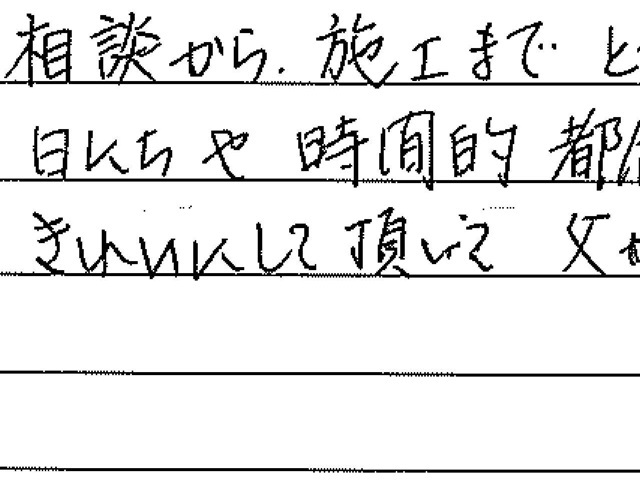 相談から、施工まで と
日にちや 時間的 都
きれいにして頂いて 父